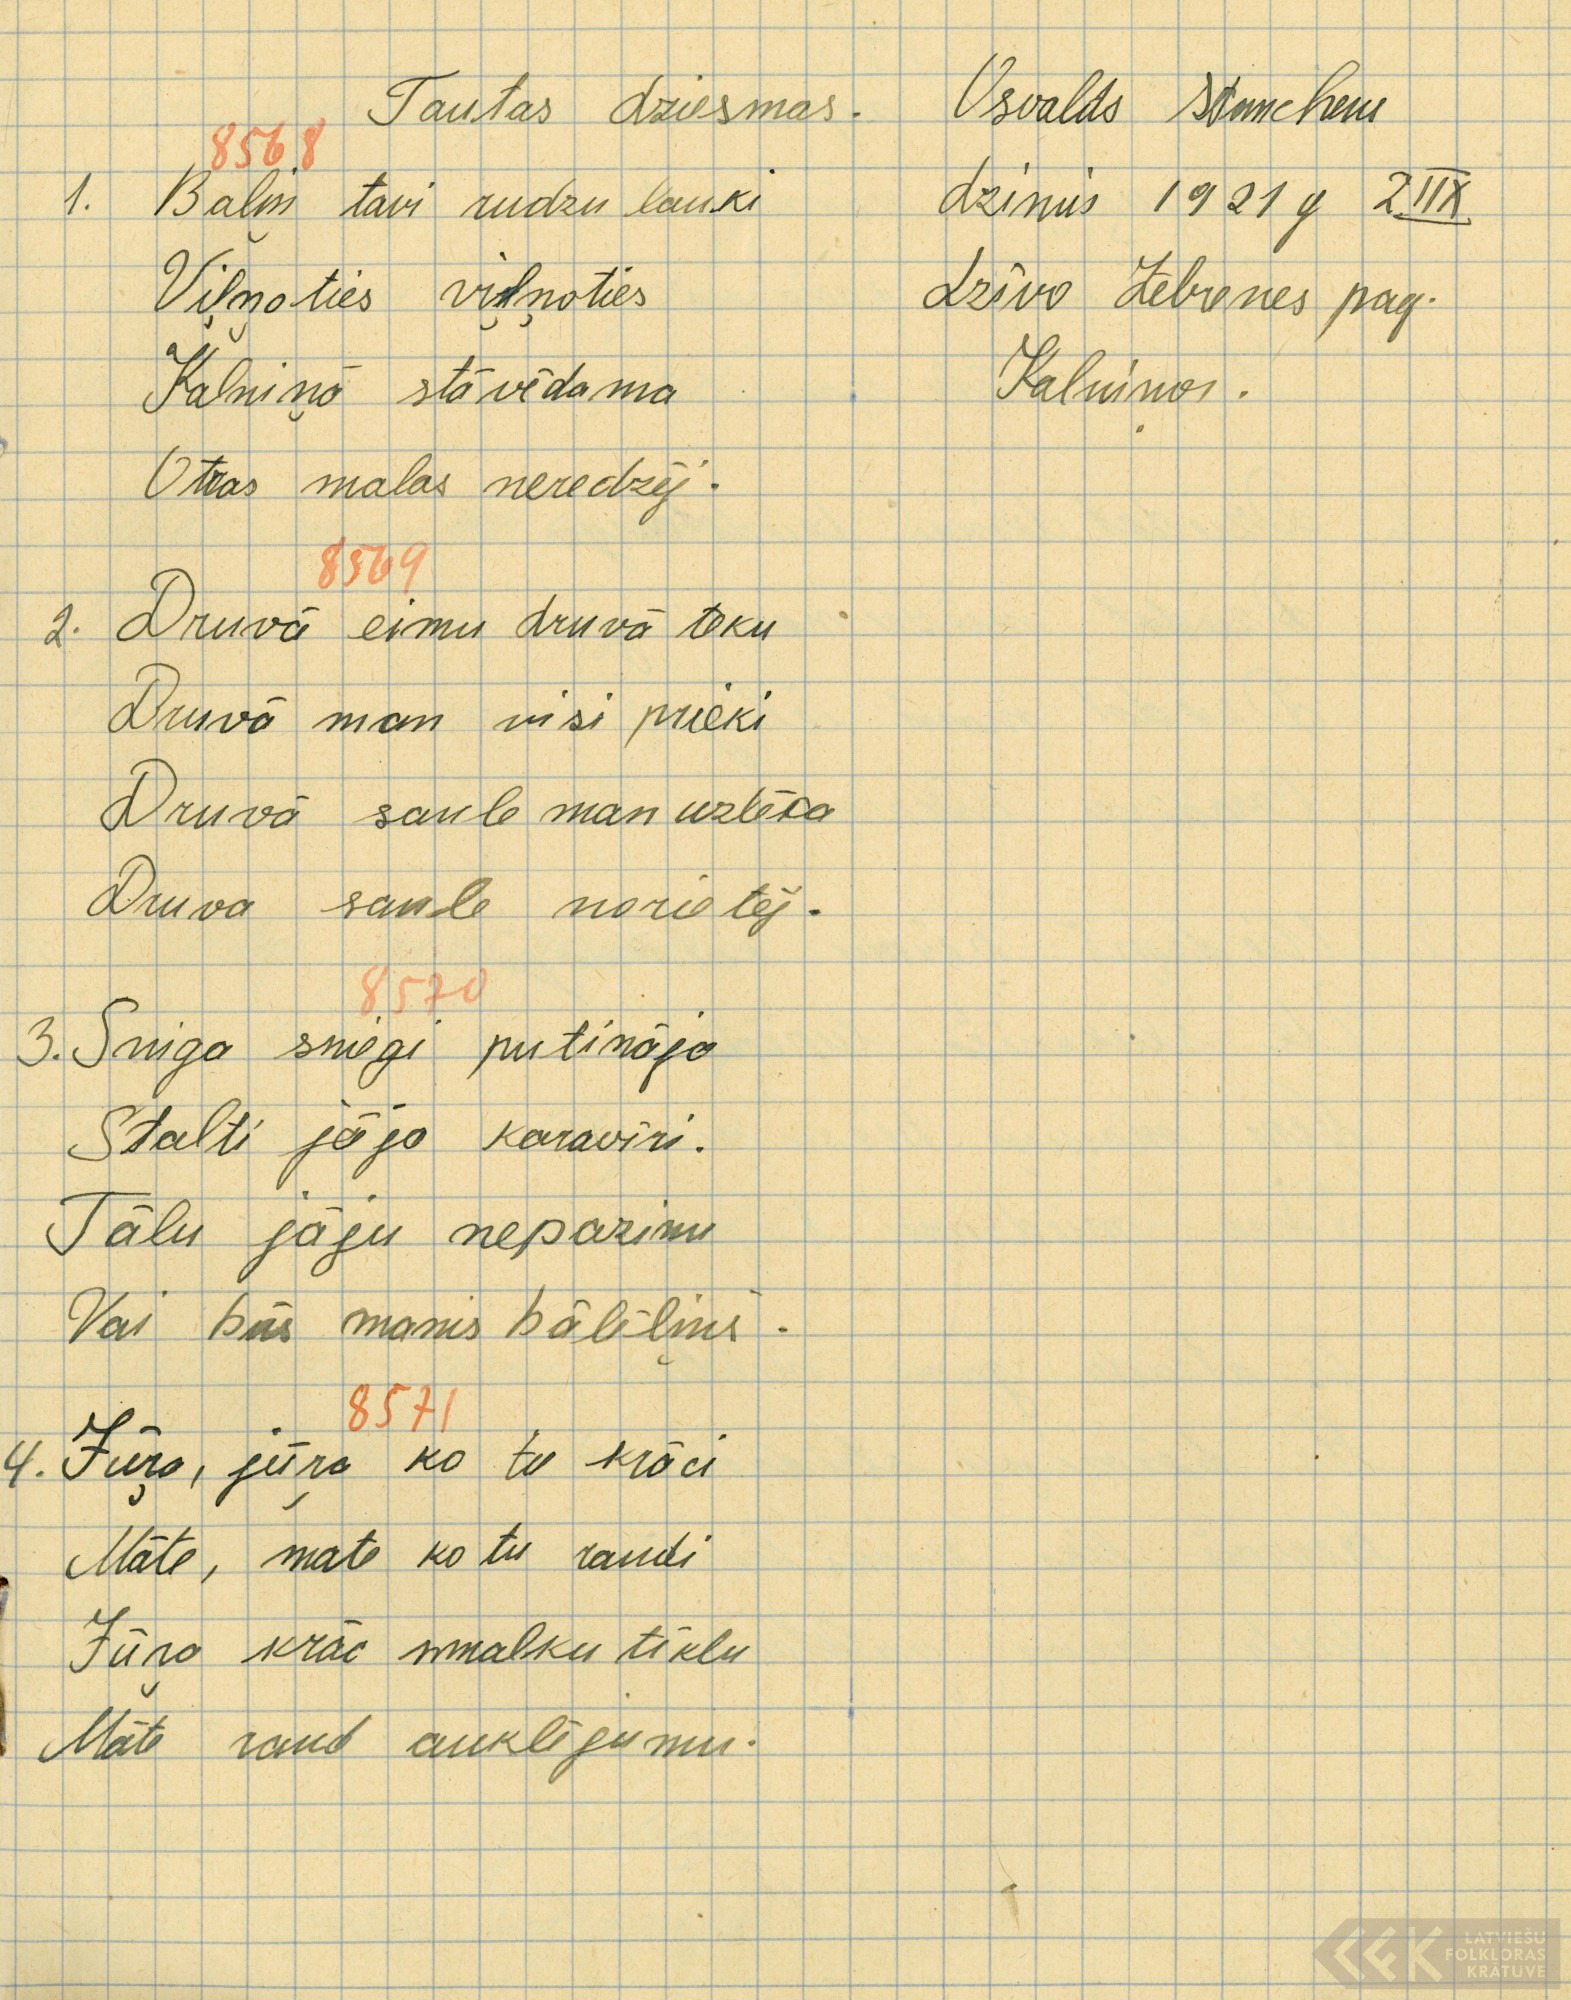 Tautas dziesmas.
8568
1. Baļiņ tavi rudzu lauki
Viļņoties viļņoties
Kalniņā stāvēdama
Otras malas neredzēj.
8569
2. Druvā eimu druvā teku
Druvā man visi prieki
Druvā saule man uzlēca
Druva saule norietēj.
8570
3. Sniga sniegi putināja
Stalti jāja karavīri.
Tālu jāju nepazinu
Vai būs manis bālēliņis.
8571
4. Jūŗa, jūŗa ko tu krāci
Māte, mate ko tu raudi
Jūŗa krāc smalku tīklu
Māte raud auklējumu.
Osvalds
dzimis 1921 g 2 IIX
dzīvo Zebrenes pag.
Kalniņos.
LATVIEŠU
FOLKLORAS
KRĀTUVE